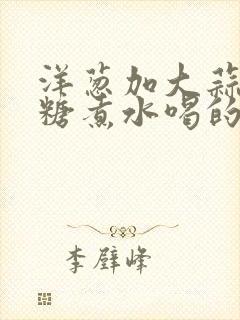 洋葱加大蒜
糖煮水喝的
李璧峰